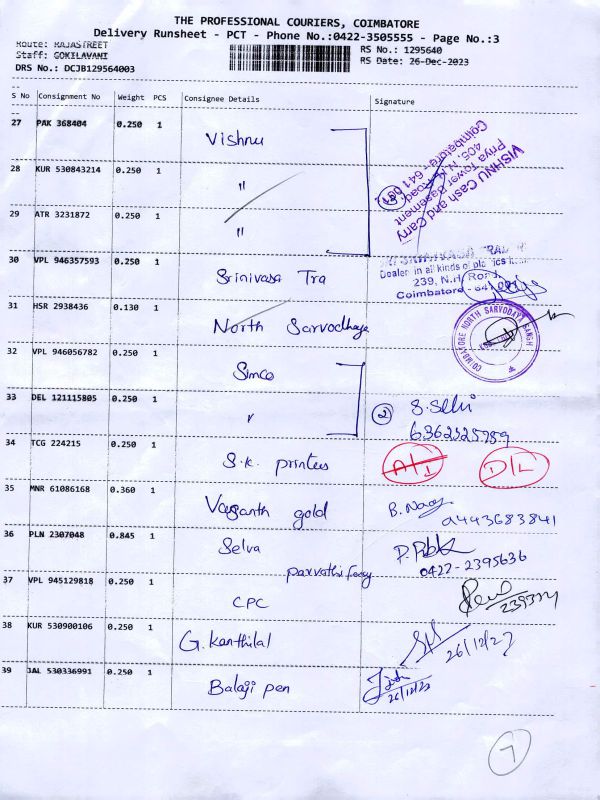 THE PROFESSIONAL COURIERS, COIMBATORE
Delivery Runsheet - PCT - Phone No.:0422-3505555 - Page No.:3
Route: RAJASTREET
RS No.: 1295640
Staff: GOKILAVANI
RS Date: 26-Dec-2023
DRS No.: DCJB129564003
S No Consignment No Weight PCS Consignee Details Signature
27 PAK 368404 0.250 1 Vishnu
VISHNU Cash and Carry
Priya Tower Basement
Coimbatore - 641 001.
28 KUR 530843214 0.250 1 "
29 ATR 3231872 0.250 1 "
30 VPL 946357593 0.250 1 Srinivasa Tra
Dealer in all kinds of
239, N.H. Road,
Coimbatore - 641 001
31 HSR 2938436 0.130 1 North Sarvodhaya
COIMBATORE NORTH SARVODAYA SANGH
32 VPL 946056782 0.250 1 Simco
33 DEL 121115805 0.250 1 "
2 S. Selvi
6362325789
34 TCG 224215 0.250 1 S.K. printers
A/I D/L
35 MNR 61086168 0.360 1 Vasanth gold B. Nagy
9443683841
36 PLN 2307048 0.845 1 Selva
0422-2395636
parvathi
37 VPL 945129818 0.250 1 CPC
38 KUR 530900106 0.250 1 G. Kanthilal
26/12/23
39 JAL 530336991 0.250 1 Balaji pen
26/12/23
7